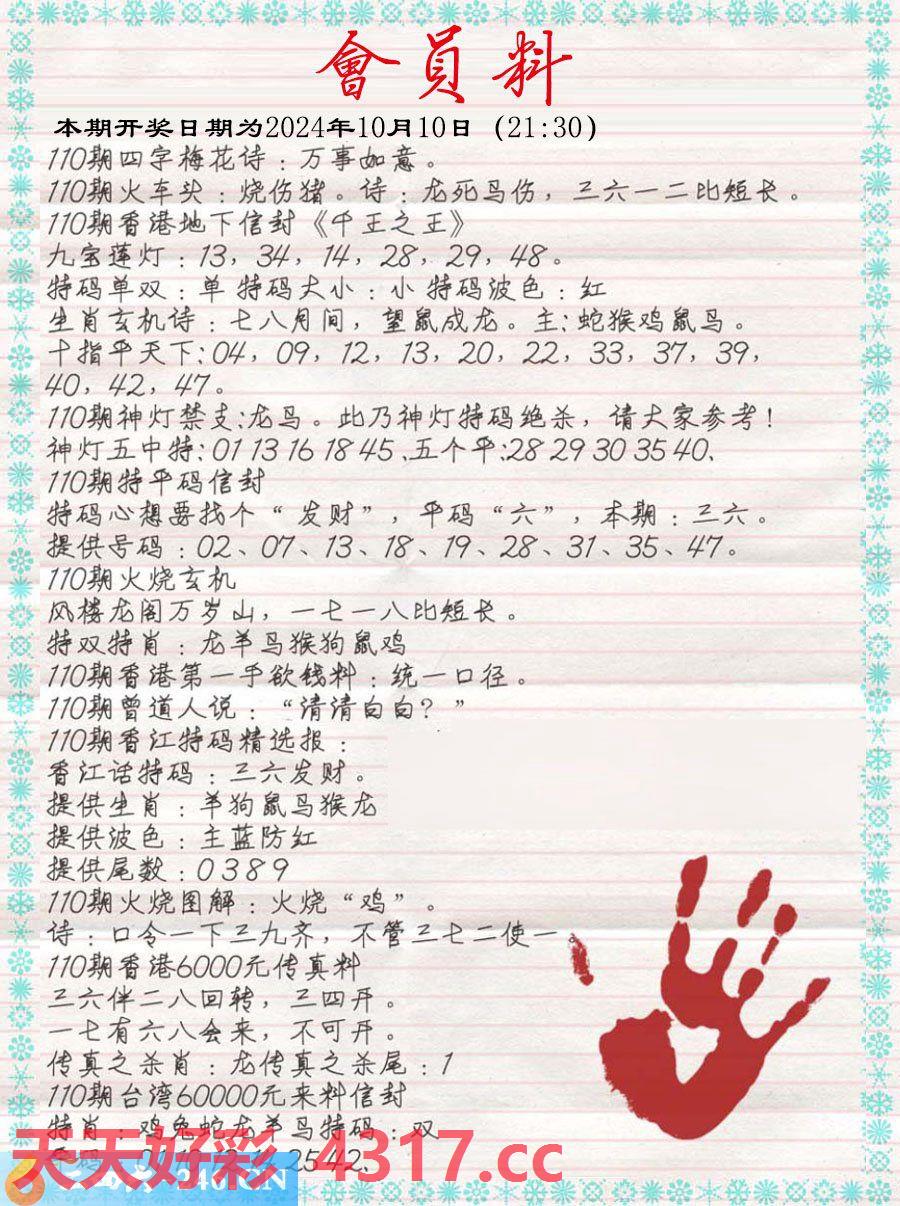 會員料
本期开奖日期为2024年10月10日（21:30）
110期四字梅花诗：万事如意。
110期火车头：烧伤猪。诗：龙死马伤，三六一二比短长。
110期香港地下信封《千王之王》
九宝莲灯：13，34，14，28，29，48。
特码单双：单 特码大小：小 特码波色：红
生肖玄机诗：七八月间，望鼠成龙。主:蛇猴鸡鼠马。
十指平天下:04，09，12，13，20，22，33，37，39，
40，42，47。
110期神灯禁支:龙马。此乃神灯特码绝杀，请大家参考！
神灯五中特:01 13 16 18 45、五个平:28 29 30 35 40、
110期特平码信封
特码心想要找个“发财”，平码“六”，本期：三六。
提供号码：02、07、13、18、19、28、31、35、47。
110期火烧玄机
风楼龙阁万岁山，一七一八比短长。
特双特肖：龙羊马猴狗鼠鸡
110期香港第一手欲钱料：统一口径。
110期曾道人说：“清清白白？”
110期香江特码精选报：
香江话特码：三六发财。
提供生肖：羊狗鼠马猴龙
提供波色：主蓝防红
提供尾数：0389
110期火烧图解：火烧“鸡”。
诗：口令一下三九齐，不管三七二使一。
110期香港6000元传真料
三六伴二八回转，三四开。
一七有六八会来，不可开。
传真之杀肖：龙传真之杀尾：1
110期台湾60000元来料信封
特肖：鸡兔蛇龙羊马特码：双
25 42、
天天好彩 4317.cc